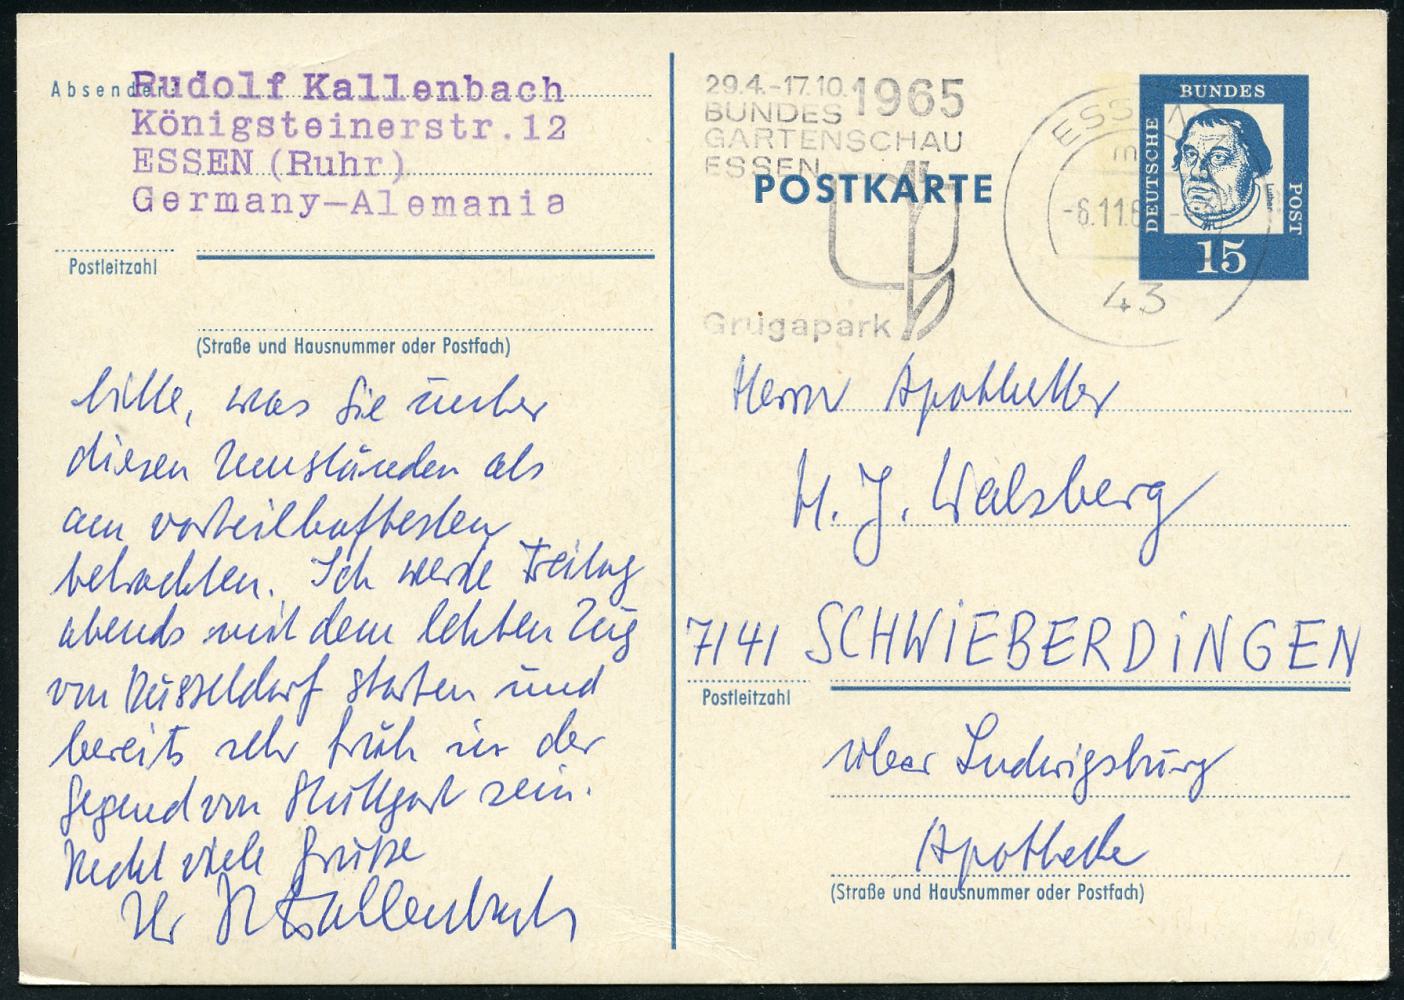 Absender:
Rudolf Kallenbach
Königsteinerstr.12
ESSEN (Ruhr)
Germany-Alemania
Postleitzahl
(Straße und Hausnummer oder Postfach)
bitte, was Sie unter
diesen Umständen als
am vorteilhaftesten
betrachten. Ich werde Freitag
abends mit dem letzten Zug
von Düsseldorf starten und
bereits sehr früh in der
Gegend von Stuttgart sein.
Recht viele Grüße
Ihr R Kallenbach
29.4.-17.10.1965
BUNDES
GARTENSCHAU
ESSEN
Grugapark
POSTKARTE
ESSEN
-6.11.6
43
DEUTSCHE BUNDES POST
15
Herrn Apotheker
H. J. Walsberg
7141 SCHWiEBERDiNGEN
Postleitzahl
über Ludwigsburg
Apotheke
(Straße und Hausnummer oder Postfach)